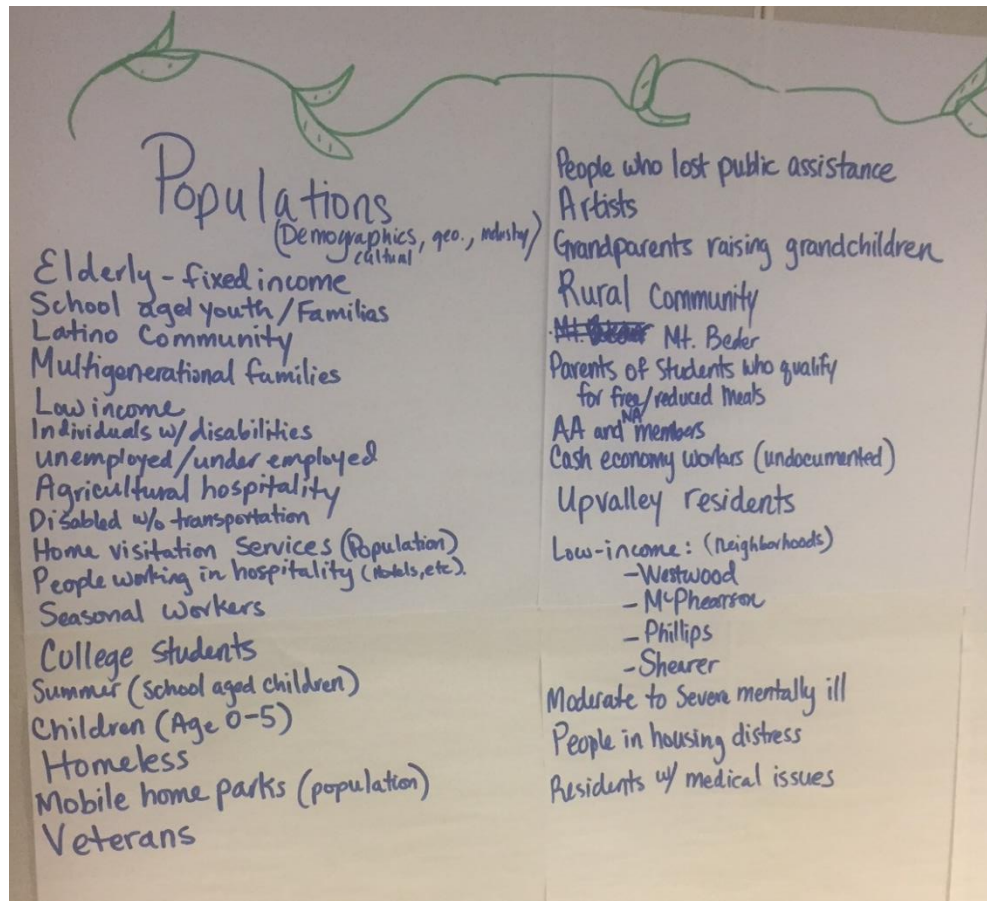 Populations
(Demographics, geo., industry)
cultural
Elderly - fixed income
School aged youth / Familias
Latino Community
Multigenerational families
Low income
Individuals w/ disabilities
unemployed/under employed
Agricultural hospitality
Disabled w/o transportation
Home visitation Services (Population)
People working in hospitality (Hotels, etc).
Seasonal workers
College students
Summer (School aged children)
Children (Age 0-5)
Homeless
Mobile home parks (population)
Veterans
People who lost public assistance
Artists
Grandparents raising grandchildren
Rural Community
Mt. Beder
Parents of Students who qualify
for free/reduced meals
AA and NA members
Cash economy workers (undocumented)
Upvalley residents
Low-income: (neighborhoods)
- Westwood
- McPhearson
- Phillips
- Shearer
Moderate to Severe mentally ill
People in housing distress
Residents w/ medical issues